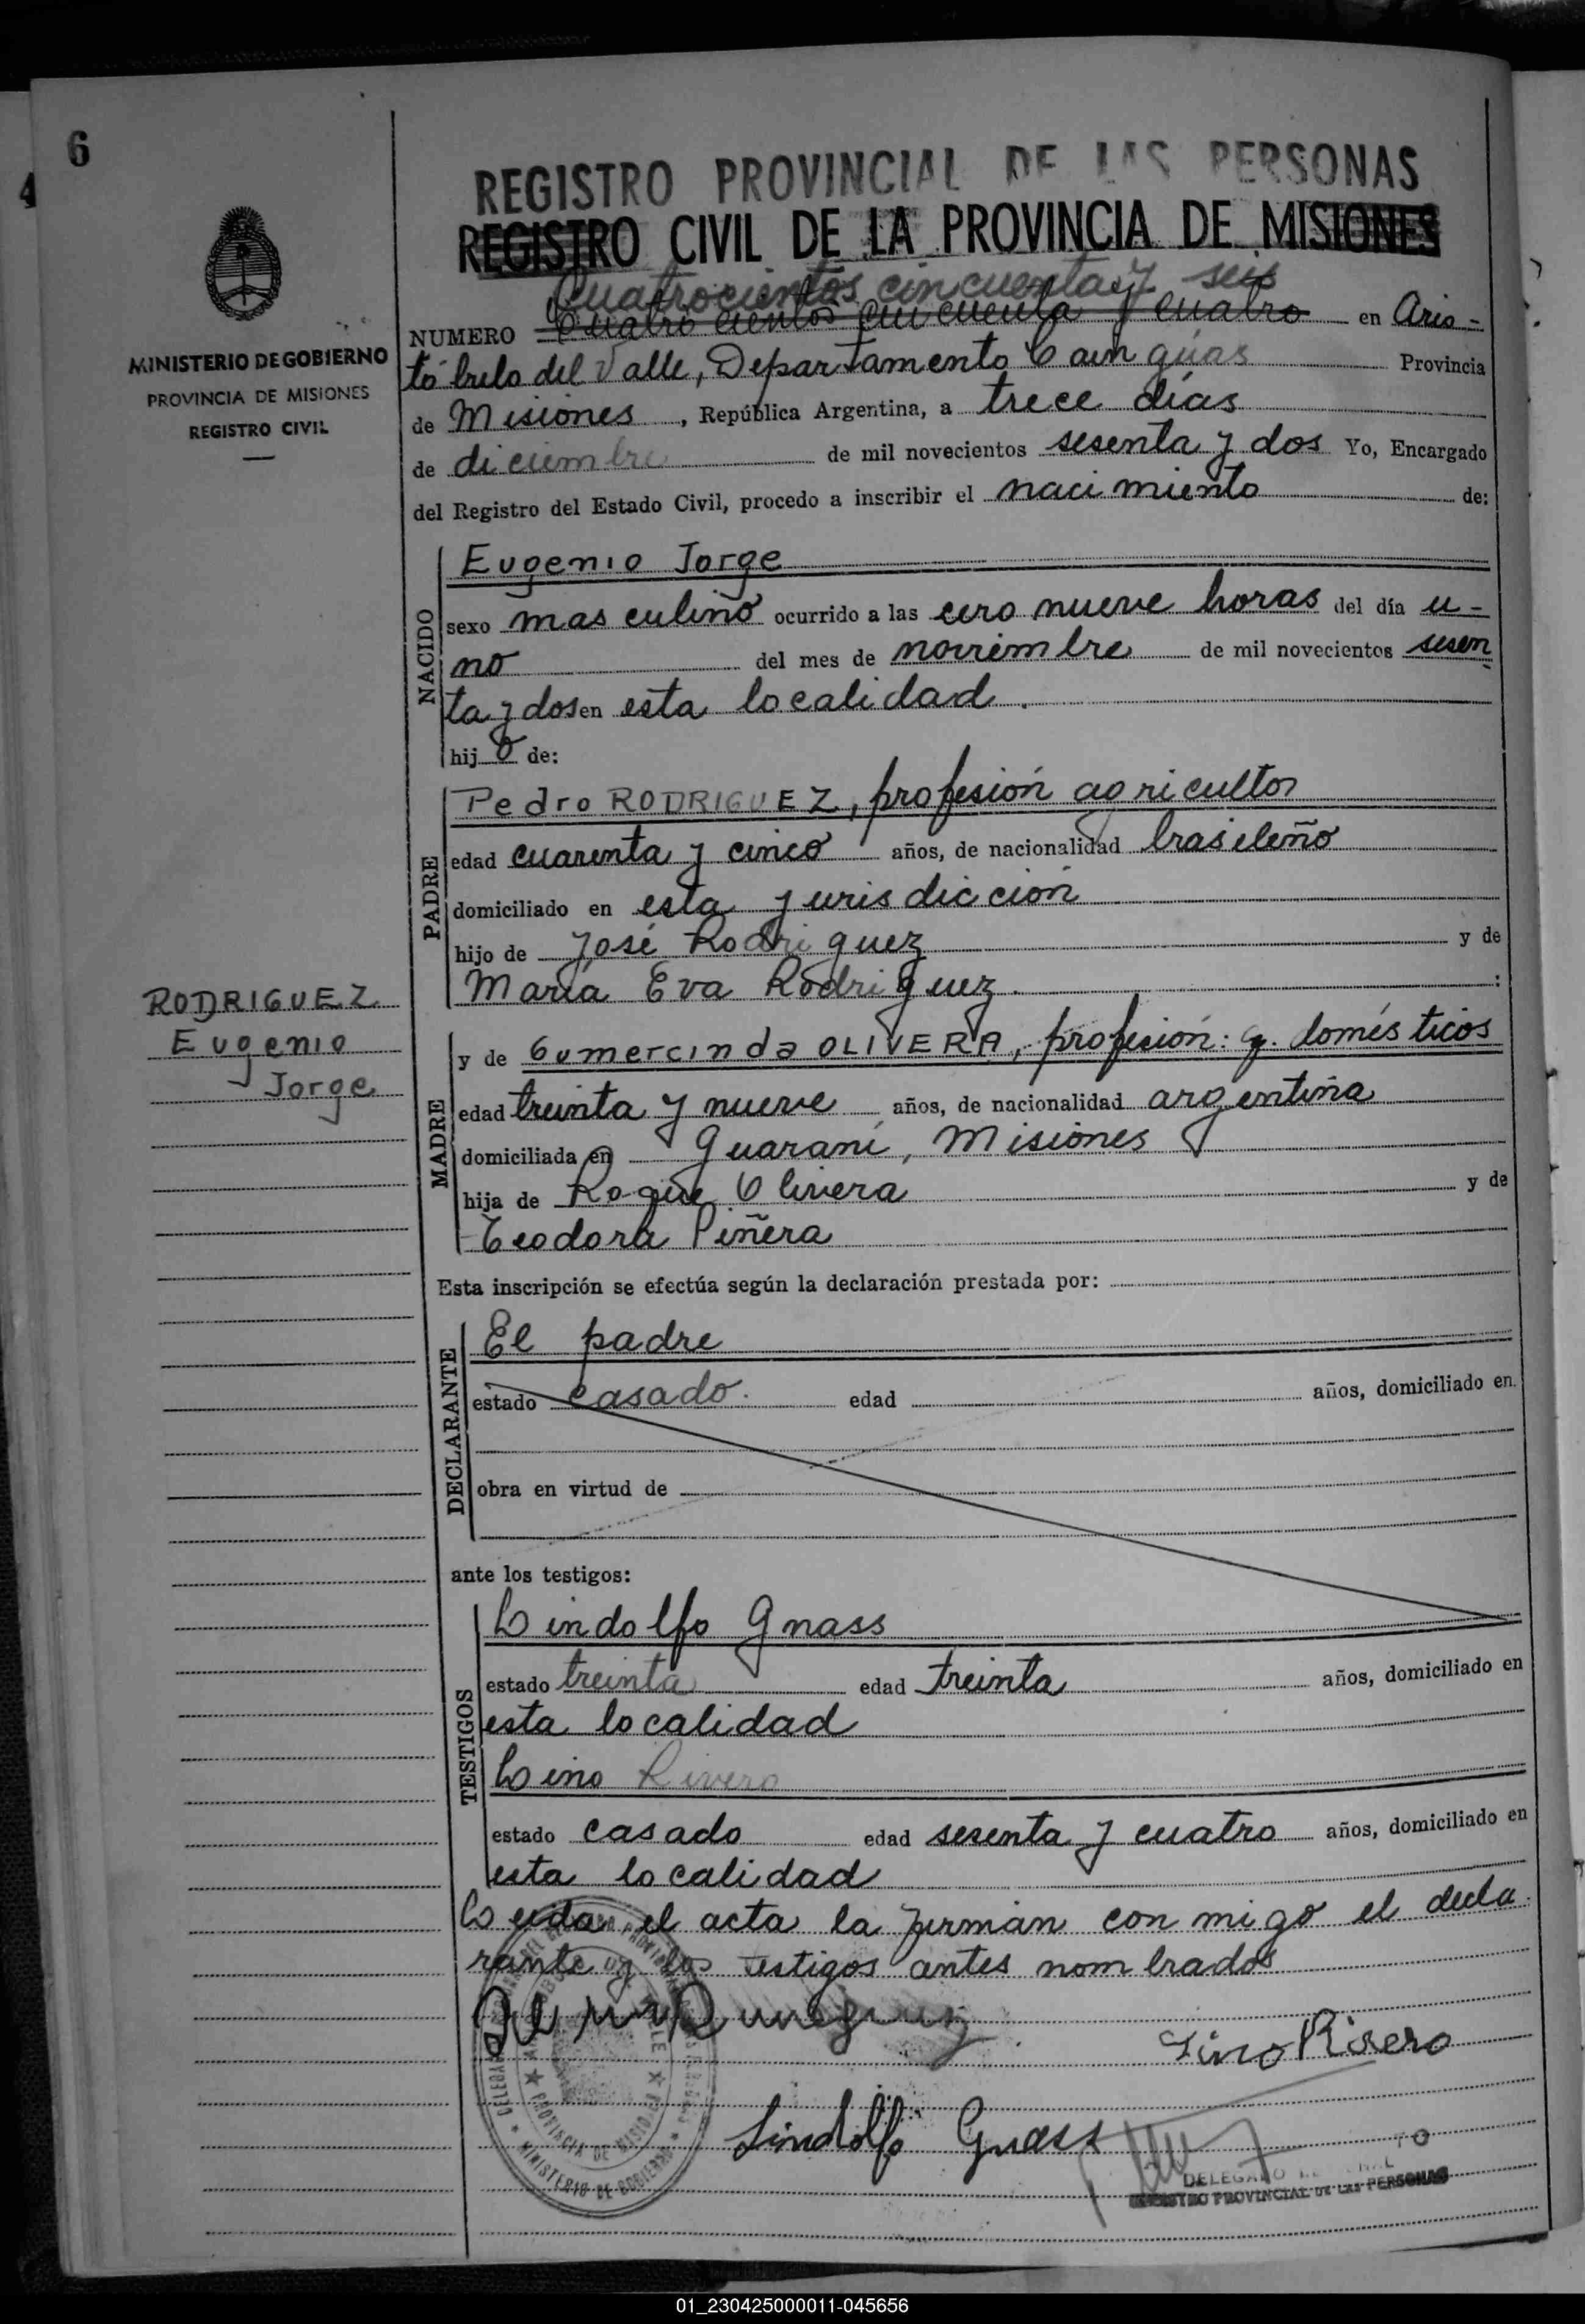 6
4
MINISTERIO DE GOBIERNO
PROVINCIA DE MISIONES
REGISTRO CIVIL
REGISTRO PROVINCIAL DE LAS PERSONAS
REGISTRO CIVIL DE LA PROVINCIA DE MISIONES
Cuatrocientos cincuenta y seis
NUMERO Cuatro cientos cincuenta y cuatro en Aris-
tóbulo del Valle, Departamento Cainguas Provincia
de Misiones, República Argentina, a trece días
de diciembre de mil novecientos sesenta y dos Yo, Encargado
del Registro del Estado Civil, procedo a inscribir el nacimiento de:
NACIDO
Eugenio Jorge
sexo masculino ocurrido a las cero nueve horas del día u-
no del mes de noviembre de mil novecientos sesen
ta y dos en esta localidad.
hijo de:
PADRE
Pedro RODRIGUEZ, profesión agricultor
edad cuarenta y cinco años, de nacionalidad brasileño
domiciliado en esta jurisdicción
hijo de José Rodriguez y de
María Eva Rodriguez. :
RODRIGUEZ
Eugenio
Jorge
MADRE
y de Gumercinda OLIVERA, profesión: q. domésticos
edad treinta y nueve años, de nacionalidad argentina
domiciliada en Guaraní, Misiones
hija de Roque Olivera y de
Teodora Piñera
Esta inscripción se efectúa según la declaración prestada por:
DECLARANTE
El padre
estado casado. edad años, domiciliado en
obra en virtud de
ante los testigos:
TESTIGOS
Lindolfo Gnass
estado treinta edad treinta años, domiciliado en
esta localidad
Lino Rivero
estado casado edad sesenta y cuatro años, domiciliado en
esta localidad
Leida el acta la firman con migo el decla
rante y los testigos antes nombrados
Lino Rivero
Lindolfo Gnass
PROVINCIA DE MISIONES
MINISTERIO DE GOBIERNO
DELEGADO
REGISTRO PROVINCIAL DE LAS PERSONAS
01_230425000011-045656